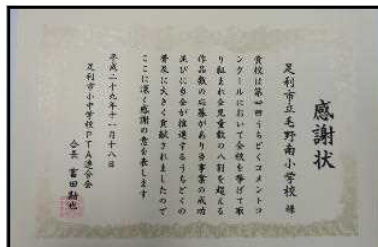 感謝状
足利市立毛野南小学校 様
貴校は第四回うちどくコメントコ
ンクールにおいて全校を挙げて取
り組まれ全児童数の八割を超える
作品数の応募があり当事業の成功
並びに当会が推進するうちどくの
普及に大きく貢献されましたので
ここに深く感謝の意を表します
平成二十九年十一月十八日
足利市小中学校PTA連合会
会長 富田